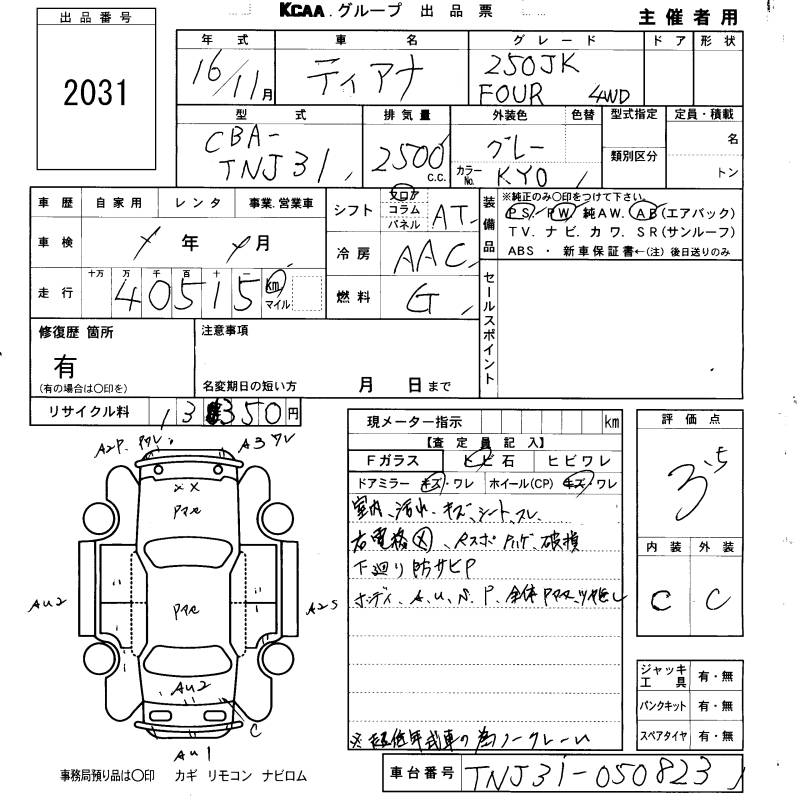 KCAA.グループ 出品票
主催者用
出品番号
2031
年式 車名 グレード ドア 形状
16/11月 ティアナ 250JK
FOUR 4WD
型式 排気量 外装色 色替 型式指定 定員・積載
CBA-
TNJ31 2500 C.C. グレー
カラーNo. KY0
類別区分
名
トン
車歴 自家用 レンタ 事業.営業車
シフト フロア コラム パネル AT
装備品
※純正のみ〇印をつけて下さい。
PS. PW. 純AW. AB(エアバック)
TV. ナビ. カワ. SR(サンルーフ)
ABS ・ 新車保証書←(注) 後日送りのみ
車検 年 月
冷房 AAC
走行 十万 万 千 百 十 一
40515 km マイル
燃料 G
セールスポイント
修復歴 箇所
有
(有の場合は〇印を)
注意事項
名変期日の短い方 月 日まで
リサイクル料 13350円
現メーター指示 km
【査定員記入】
Fガラス ヒビ石 ヒビワレ
ドアミラー キズ・ワレ ホイール(CP) キズ・ワレ
室内、汚れ、キズ、シート、スレ、
右電格
破損
下廻り防サビP
ボディ、A、U、S、P、全体
評価点
3.5
内装 外装
C C
A3
Au2
A25
Au2
C
Au1
ジャッキ工具 有・無
パンクキット 有・無
スペアタイヤ 有・無
※超低年式車の為ノークレーム
事務局預り品は〇印 カギ リモコン ナビロム
車台番号 TNJ31-050823